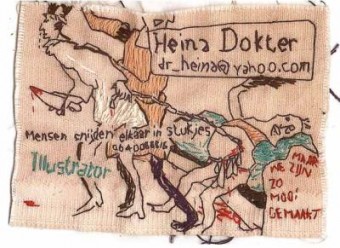 Heina Dokter
dr_heina@yahoo.com
Mensen snijden elkaar in stukjes
Illustrator
MAAR
WE ZIJN
ZO
MOOI
GEMAAKT